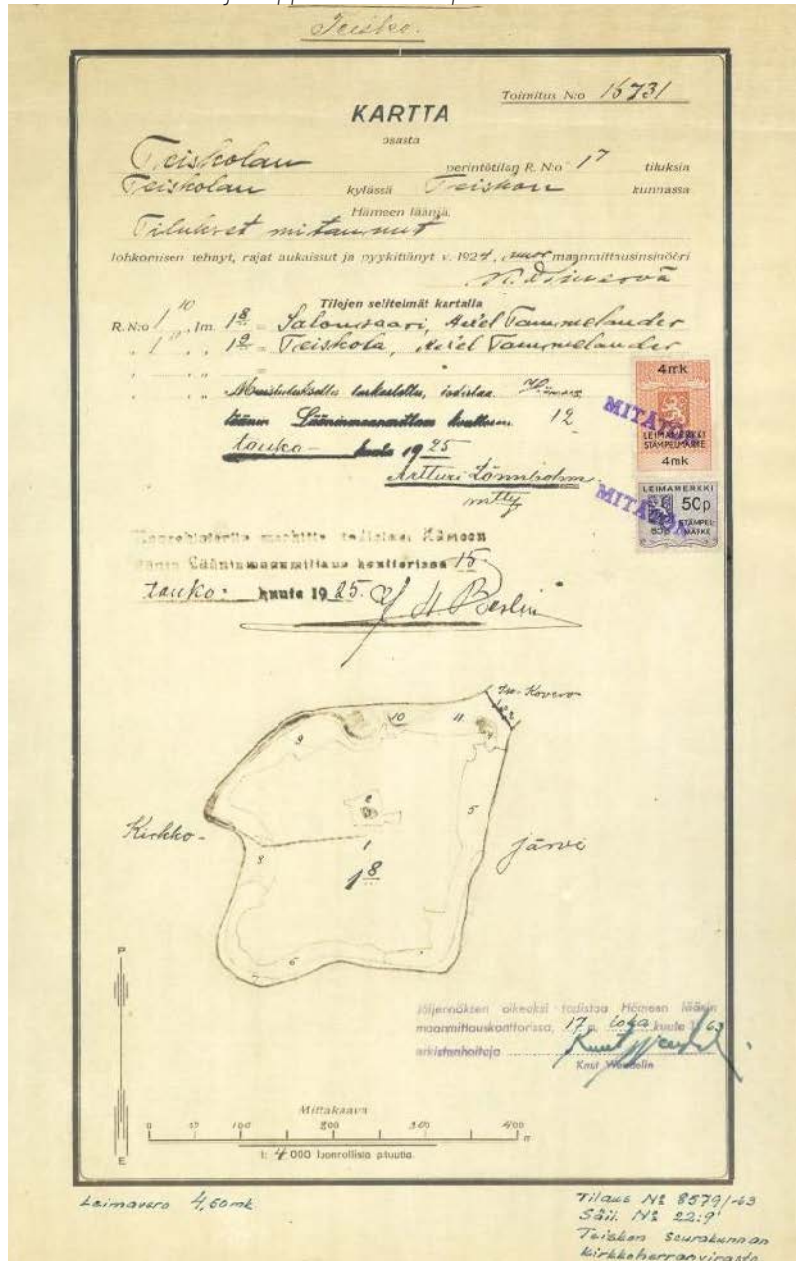 Teisko.
Toimitus N:o 16731
KARTTA
osasta
Teiskolan perintötilan R. N:o 1⁷ tiluksia
Teiskolan kylässä Teiskon kunnassa
Hämeen lääniä.
Tilukset mitannut
lohkomisen tehnyt, rajat aukaissut ja pyykittänyt v. 1924, maanmittausinsinööri
Tilojen selitelmät kartalla
R. N:o 1¹⁰, Im. 1⁸ = Salonsaari, Aksel Tammelander
" 1¹¹ " 1⁹ = Teiskola, Aksel Tammelander
Muistutuksetta tarkastettu, todistaa Hämeen
läänin Lääninmaanmittaus konttori 12
touko- kuuta 1925
Artturi Lönnbohm
4mk
LEIMAMERKKI
STÄMPELMÄRKE
4mk
MITÄTÖN
LEIMAMERKKI
50p
STÄMPEL
MÄRKE
50p
MITÄTÖN
Maarekisteriin merkitty todistaa Hämeen
läänin Lääninmaanmittaus konttorissa 15
touko- kuuta 1925.
Iso-Kovero
122
9
10
11
2
5
Kirkko-
1
järvi
8
1⁸
7
6
P
E
Jäljennöksen oikeaksi todistaa Hämeen läänin
maanmittauskonttorissa, 17 p. loka kuuta 1963
arkistonhoitaja
Knut Wendelin
Mittakaava
0 50 100 200 300 400 m
1: 4000 luonnollisia pituutta.
Leimavero 4,50mk
Tilaus No 8579/-63
Säil. No 22:9
Teiskon seurakunnan
kirkkoherranvirasto